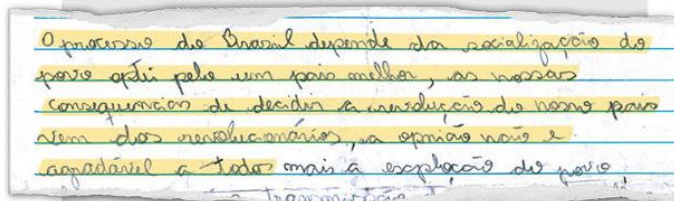 O processo do Brasil depende da socialização do
povo optei pelo um pais melhor, as nossas
consequencias de decidir a revolução do nosso pais
vem dos revolucionários, a opnião não e
agradável a todos mais a exploção do povo
transmissão